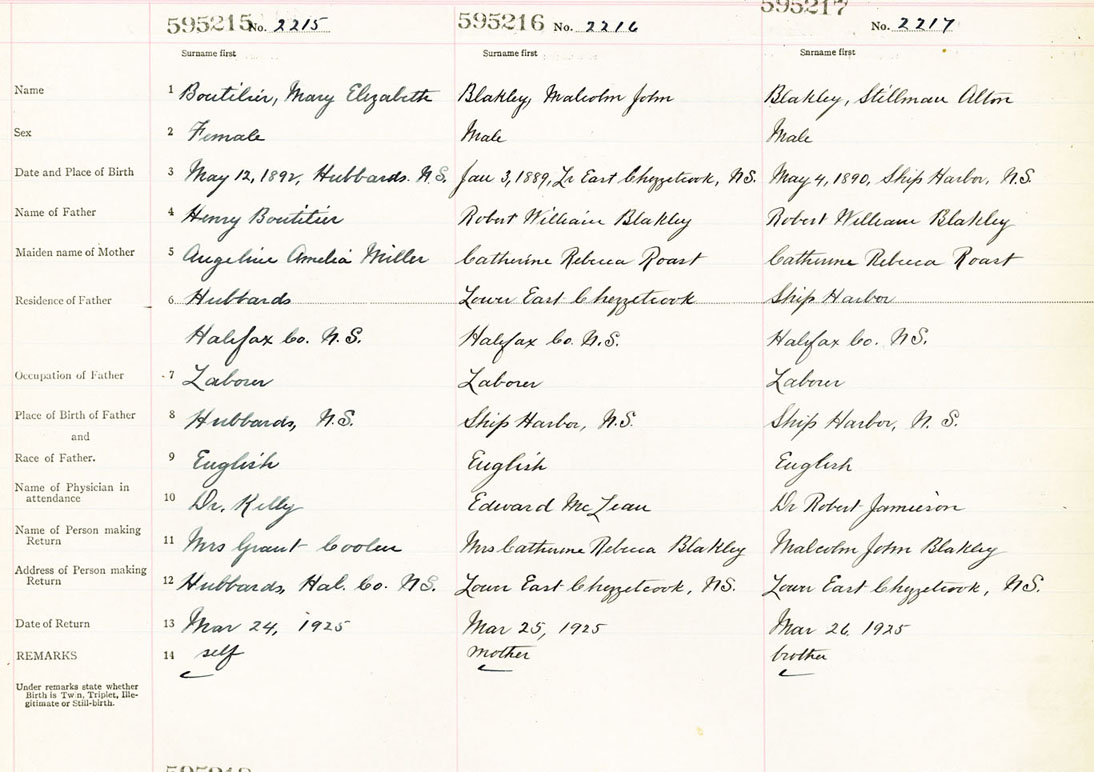 595215 No. 2215 595216 No. 2216 595217 No. 2217
Surname first Surname first Surname first
Name 1 Boutilier, Mary Elizabeth Blakley, Malcolm John Blakley, Stillman Alton
Sex 2 Female Male Male
Date and Place of Birth 3 May 12, 1892, Hubbards. N.S. Jan 3, 1889, Lr East Chezzetcook, N.S. May 4, 1890, Ship Harbor, N.S.
Name of Father 4 Henry Boutilier Robert William Blakley Robert William Blakley
Maiden name of Mother 5 Angeline Amelia Miller Catherine Rebecca Roast Catherine Rebecca Roast
Residence of Father 6 Hubbards Lower East Chezzetcook Ship Harbor
Halifax Co. N.S. Halifax Co. N.S. Halifax Co. N.S.
Occupation of Father 7 Laborer Laborer Laborer
Place of Birth of Father 8 Hubbards, N.S. Ship Harbor, N.S. Ship Harbor, N.S.
and
Race of Father. 9 English English English
Name of Physician in
attendance 10 Dr. Kelly Edward McLean Dr Robert Jamieson
Name of Person making
Return 11 Mrs Grant Coolen Mrs Catherine Rebecca Blakley Malcolm John Blakley
Address of Person making
Return 12 Hubbards, Hal. Co. N.S. Lower East Chezzetcook, N.S. Lower East Chezzetcook, N.S.
Date of Return 13 Mar 24, 1925 Mar 25, 1925 Mar 26, 1925
REMARKS 14 self mother brother
Under remarks state whether
Birth is Twin, Triplet, Ille-
gitimate or Still-birth.